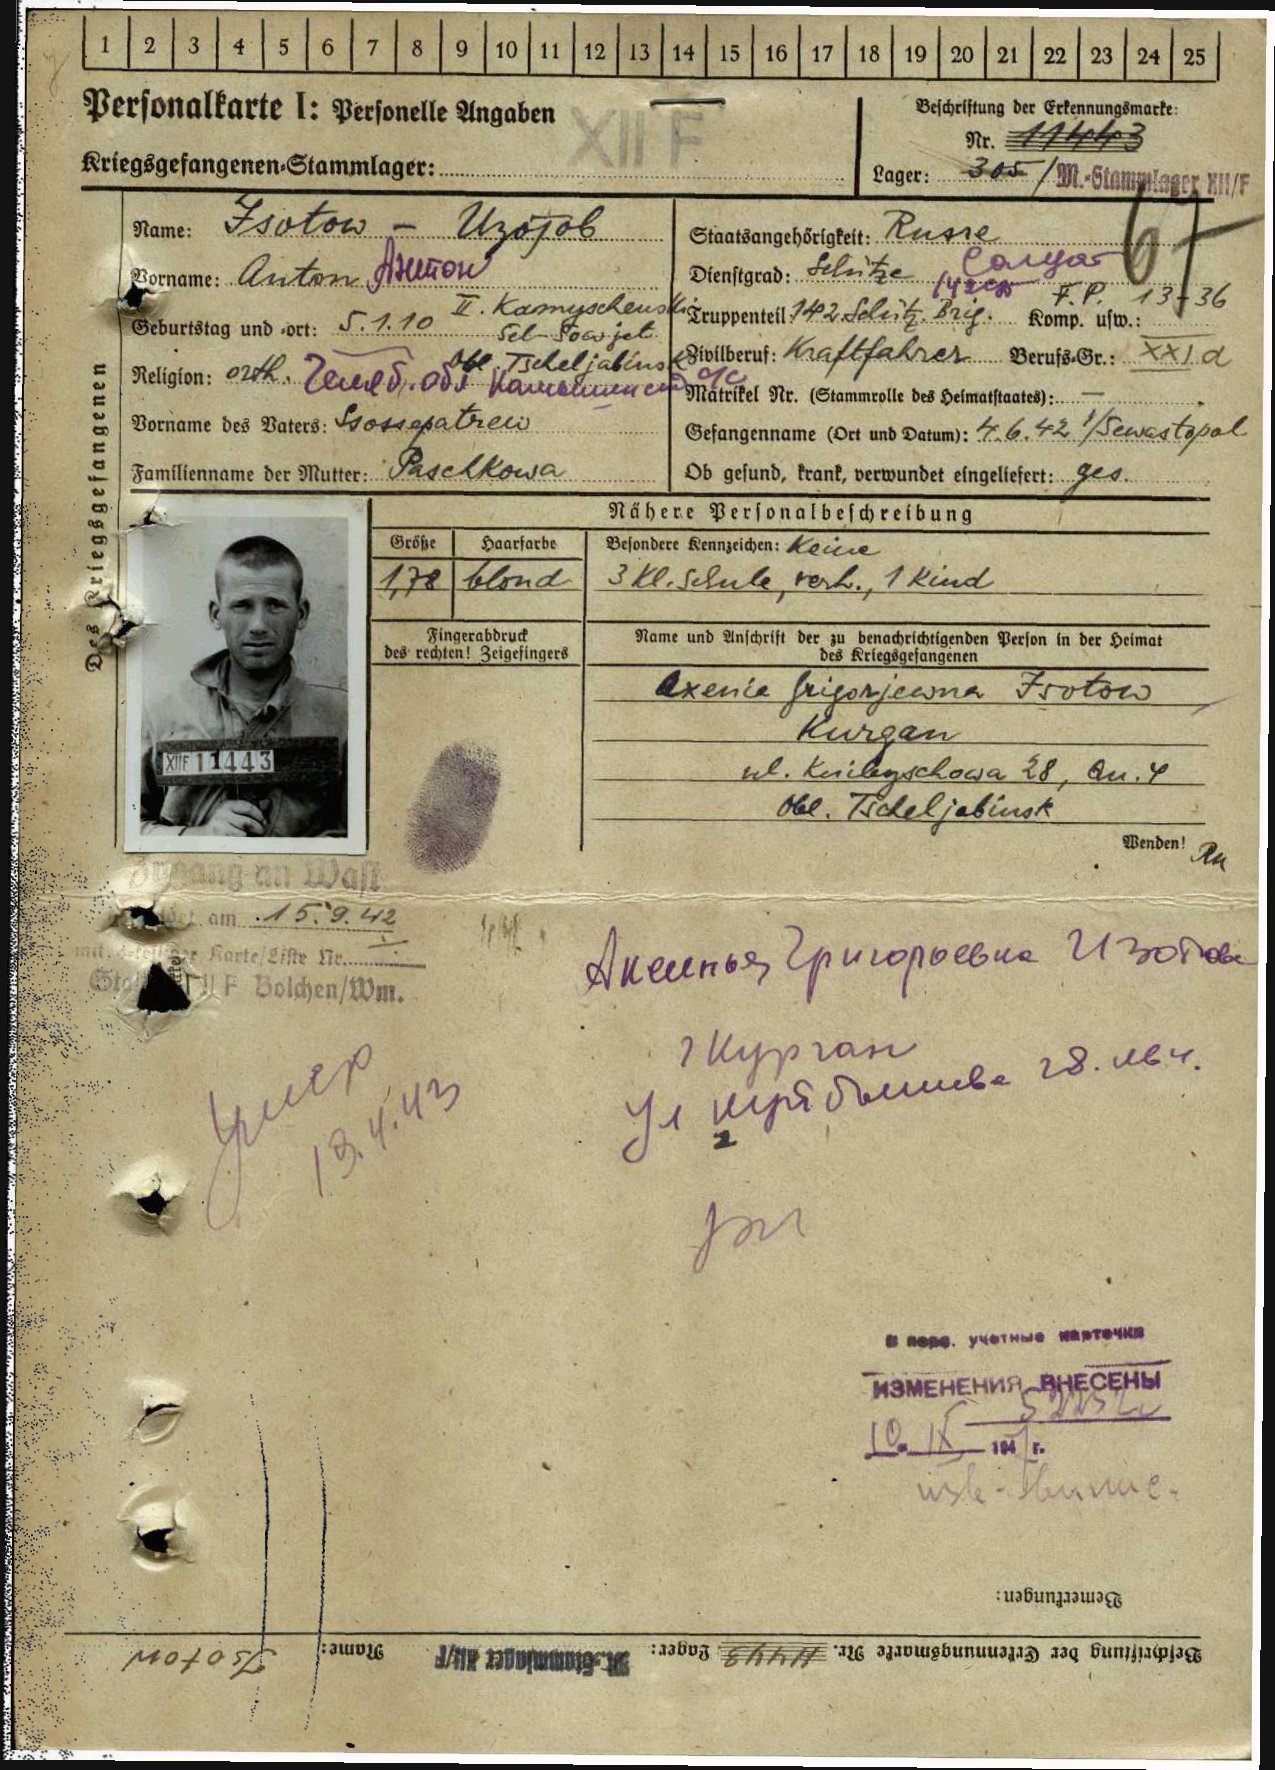 1 2 3 4 5 6 7 8 9 10 11 12 13 14 15 16 17 18 19 20 21 22 23 24 25
Personalkarte I: Personelle Angaben
XII F
Kriegsgefangenen-Stammlager:
Beschriftung der Erkennungsmarke:
Nr. 11443
Lager: 305 / M.-Stammlager XII/F
67
Des Kriegsgefangenen
Name: Isotow – Изотов
Vorname: Anton Антон
Geburtstag und -ort: 5.1.10 II. Kamyschenski
Sel-Sowjet
Obl. Tscheljabinsk
Religion: orth. Челяб. обл
Vorname des Vaters: Ssossepatrew
Familienname der Mutter: Paschkowa
Staatsangehörigkeit: Russe
Dienstgrad: Schütze Солдат
142 сп
F.P. 13-36
Truppenteil: 142. Schütz. Brig. Komp. usw.:
Zivilberuf: Kraftfahrer Berufs-Gr.: XXI d
Matrikel Nr. (Stammrolle des Heimatstaates): —
Gefangenname (Ort und Datum): 4.6.42 /Sewastopol
Ob gesund, krank, verwundet eingeliefert: ges.
Nähere Personalbeschreibung
Größe Haarfarbe Besondere Kennzeichen: Keine
1,78 blond 3 Kl. Schule, verh., 1 Kind
Fingerabdruck
des rechten! Zeigefingers
Name und Anschrift der zu benachrichtigenden Person in der Heimat
des Kriegsgefangenen
Axenia Grigorjewna Isotow
Kurgan
ul. Kuibyschowa 28, Qu. 4
Obl. Tscheljabinsk
XIIF 11443
Wenden!
Zugang an Wast
gemeldet am 15.9.42
mit Karte/Liste Nr.
Stalag XII F Bolchen/Wm.
Аксинья Григорьевна Изотова
г Курган
ул Куйбышева 28. кв 4.
2
умер
13.4.43
В перс. учетные карточки
ИЗМЕНЕНИЯ ВНЕСЕНЫ
10. IX 194 г.
Bemerkungen:
Beschriftung der Erkennungsmarke Nr. 11443 Lager: M.-Stammlager XII/F Name: Isotow